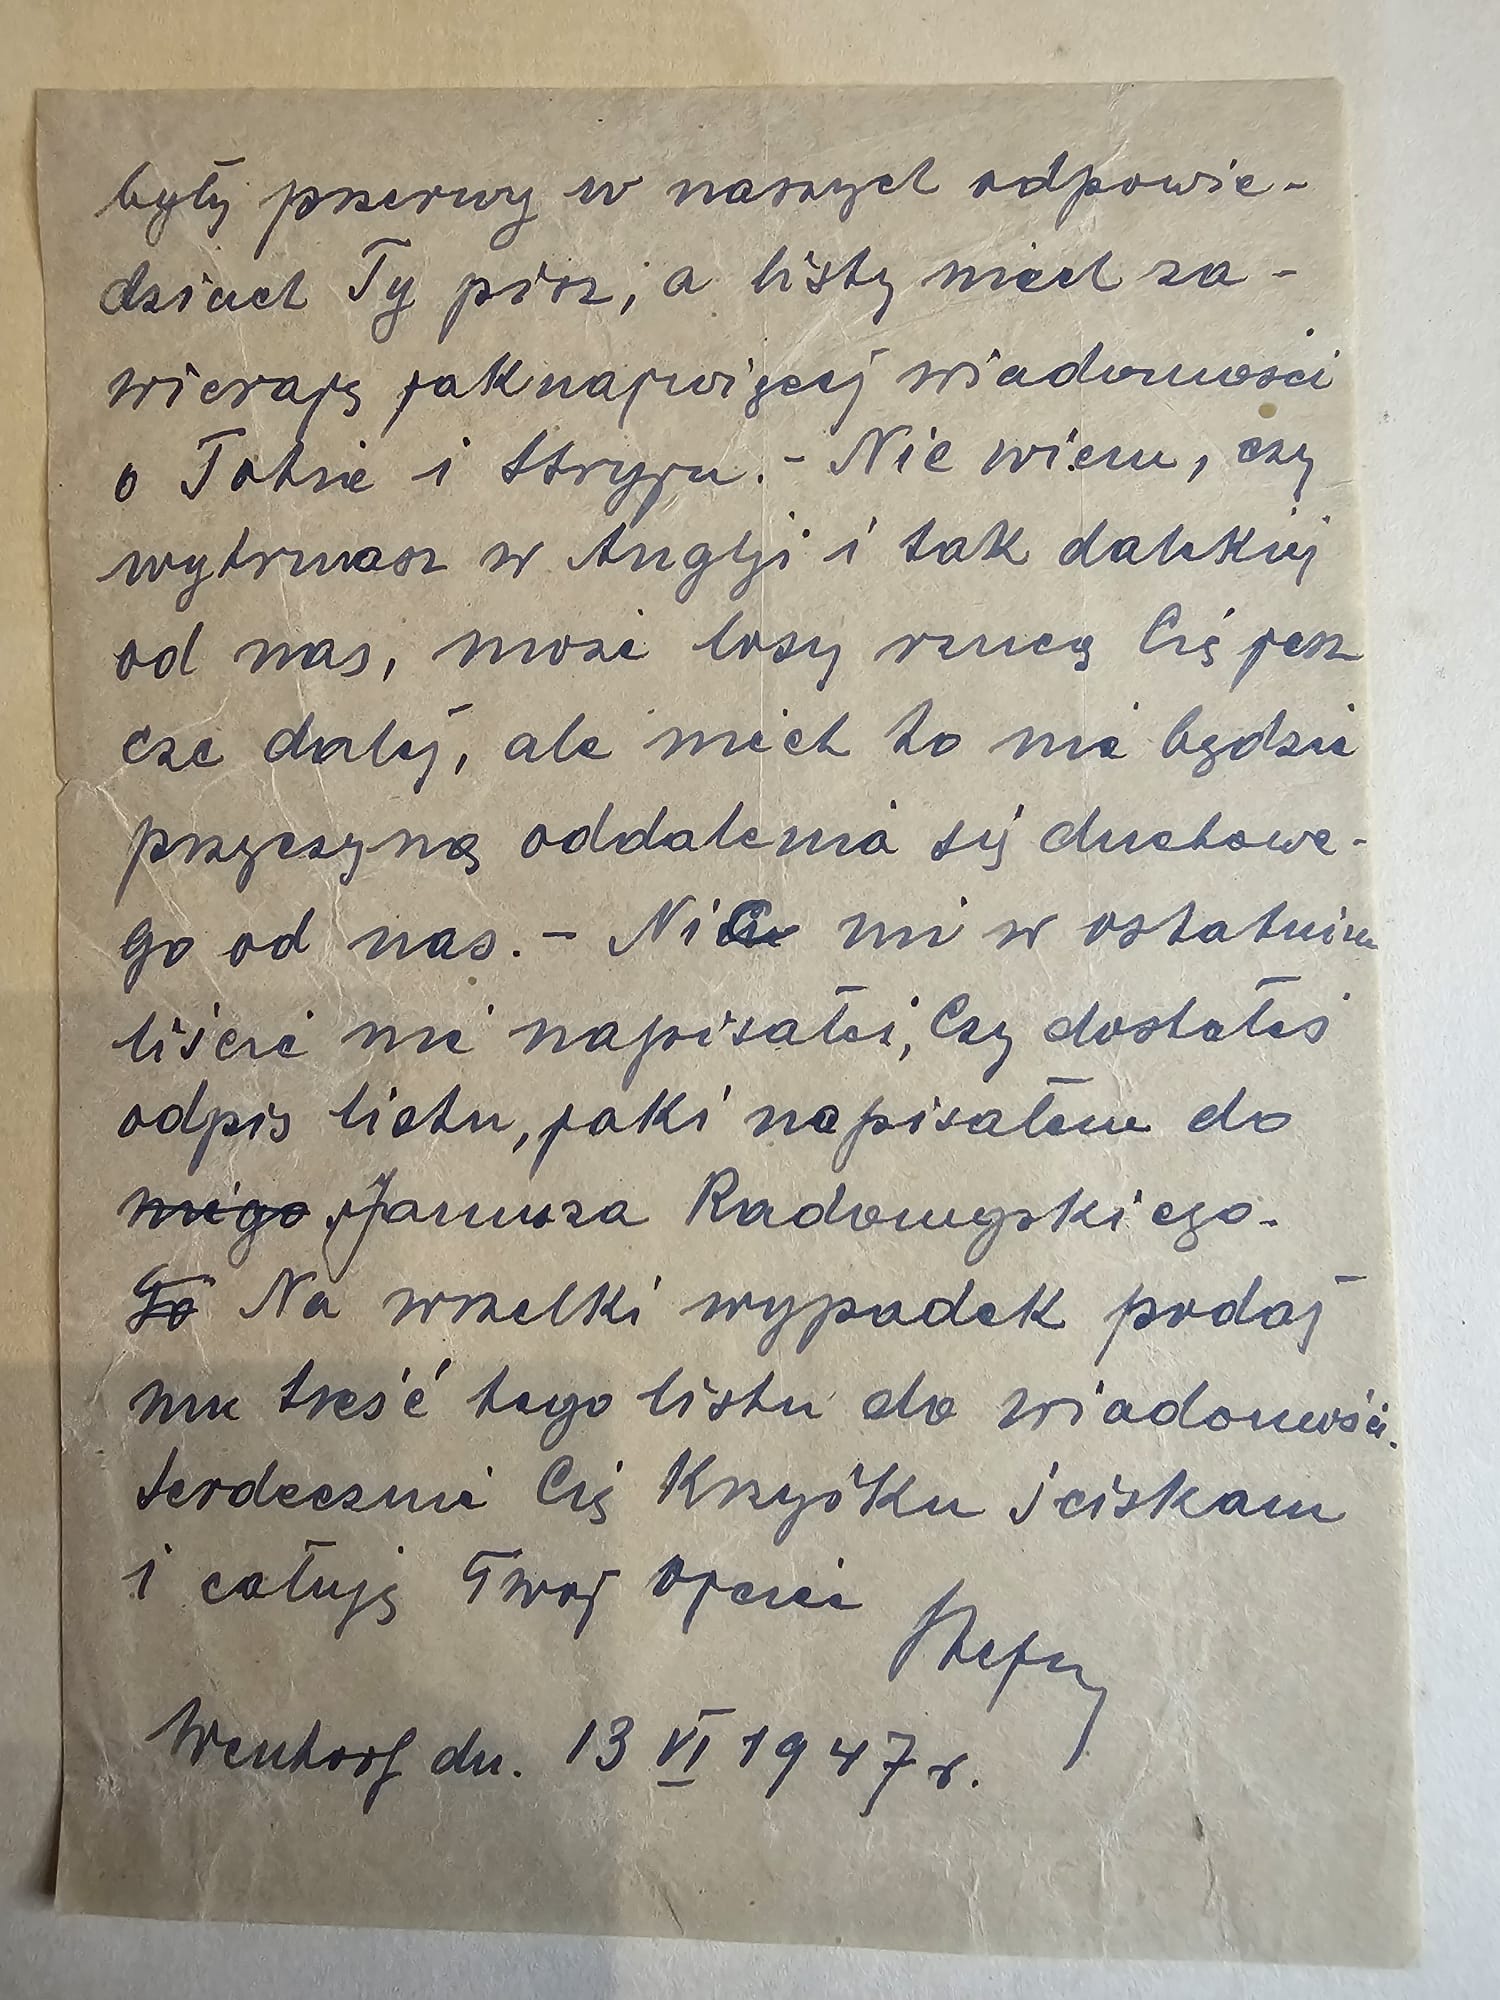 były przerwy w naszych odpowie-
dziach Ty pisz, a listy niech za-
wierają jaknajwięcej wiadomości
o Tobie i Stryju. - Nie wiem, czy
wytrwasz w Anglji i tak dalekiej
od nas, może losy rzucą Cię jesz
cze dalej, ale niech to nie będzie
przyczyną oddalenia się duchowe-
go od nas. - Nic mi w ostatnim
liście nie napisałeś, Czy dostałeś
odpis listu, jaki napisałem do
niego Janusza Radomyskiego.
To Na wszelki wypadek podaj
mu treść tego listu do wiadomości.
Serdecznie Cię Krzyśku ściskam
i całuję Twoj Ojciec
Wentorf dn. 13 VI 1947 r.